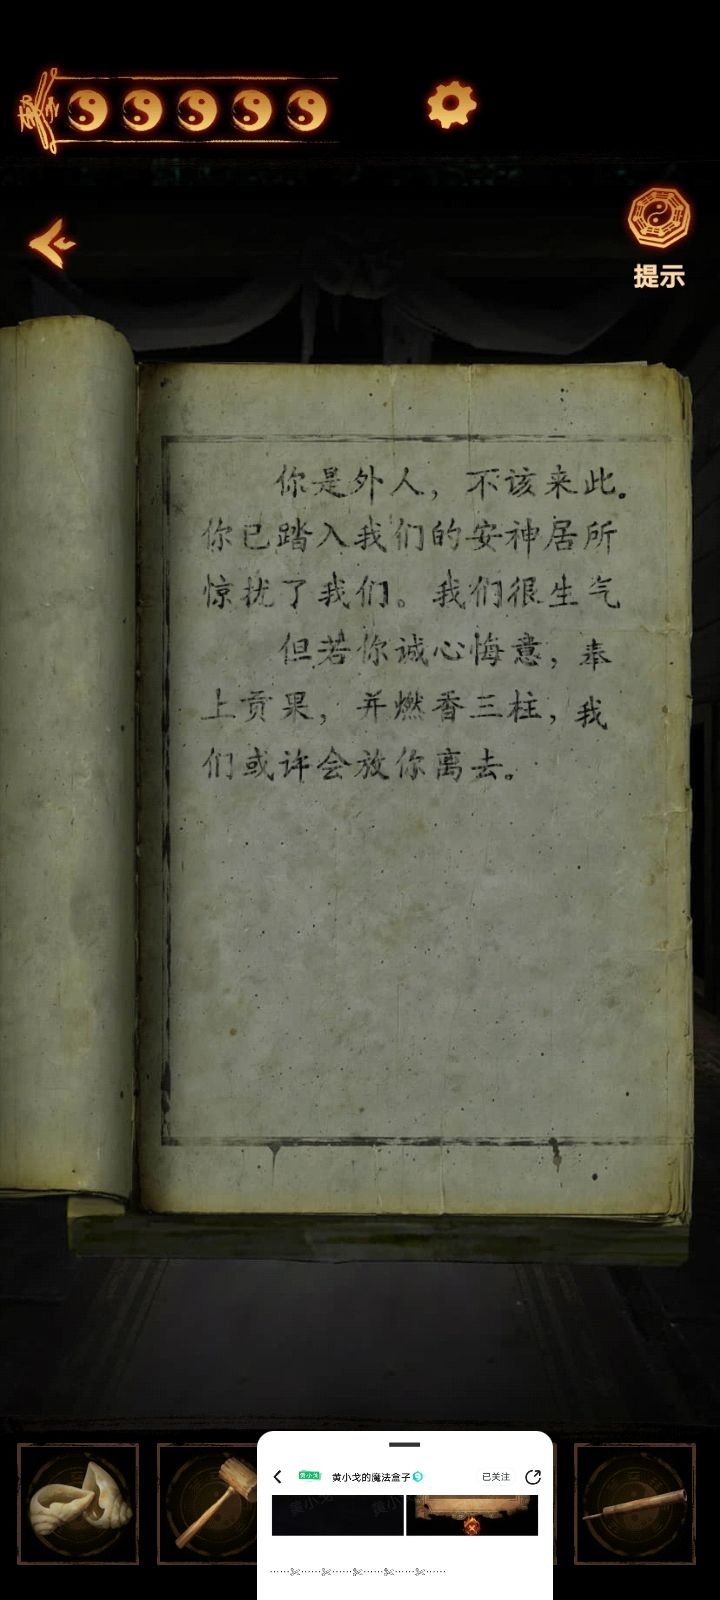 提示
你是外人，不该来此。
你已踏入我们的安神居所
惊扰了我们。我们很生气
但若你诚心悔意，奉
上贡果，并燃香三柱，我
们或许会放你离去。
黄小戈
黄小戈的魔法盒子
已关注
黄小戈